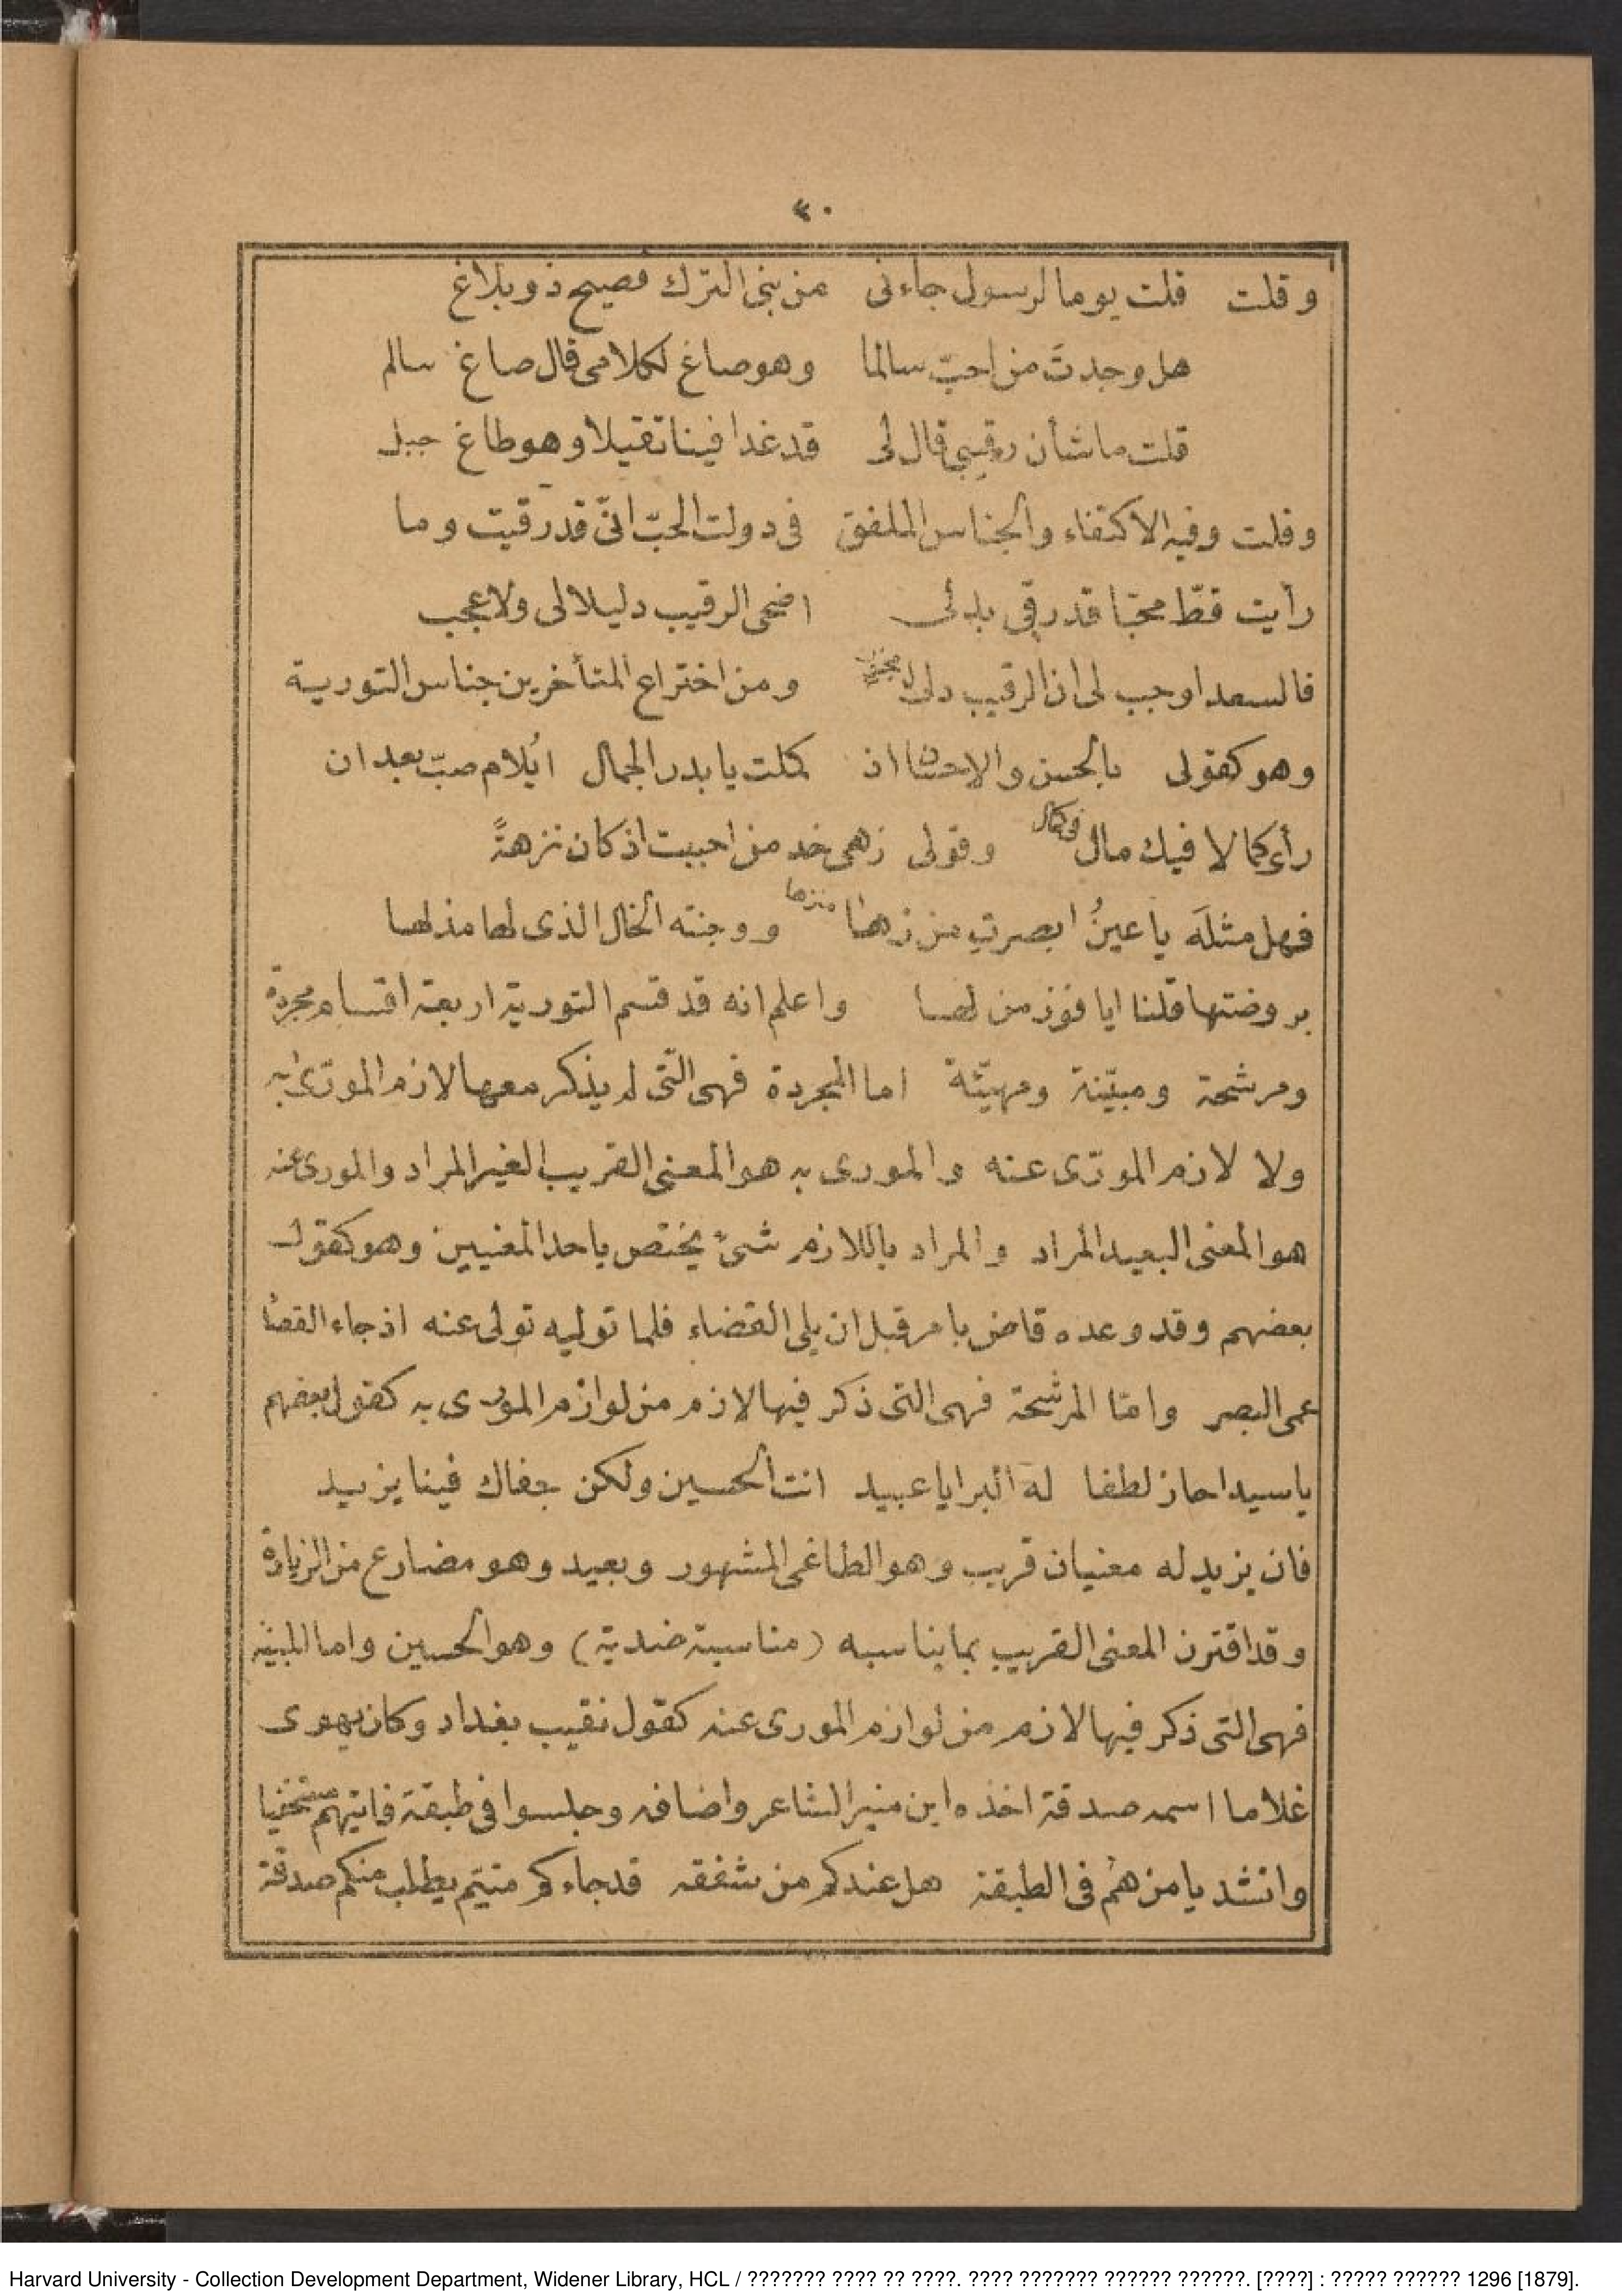 ٤٠
وقلت قلت يوما لرسول جاءنى من بنى الترك فصيح ذو بلاغ
هل وجدتَ من احبّ سالما وهو صاغ لكلامى قال صاغ سالم
قلت ما شأن رقيبى قال لى قد غدا فينا ثقيلا وهو طاغ جبل
وقلت وفيه الاكتفاء والجناس الملفق فى دولت الحبّ انّى قد رقيت وما
رأيت قطّ محبّا قد رقى بلدلى اضحى الرقيب دليلا لى ولا عجب
فالسعد اوجب لى ان الرقيب دلى ومن اختراع المتأخرين جناس التورية
وهو كقولى بالحسن والاحسان اذ كملت يا بدر الجمال ايُلام صبّ بعد ان
رأى كمالا فيك مال فى كمال وقولى زهى خد من احببت اذ كان نزهةً
فهل مثلَه يا عينُ ابصرتِ من زها منزها ووجنته الخال الذى لها مذ لها
بروضتها قلنا ايا فوز من لها واعلم انه قد قسم التورية اربعة اقسام مجردة
ومرشحة ومبيّنة ومهيّئة اما المجردة فهى الّتى لم يذكر معها لازم المورّى به
ولا لازم المورّى عنه والمورى به هو المعنى القريب الغير المراد والمورى عنه
هو المعنى البعيد المراد والمراد باللازم شئ يختص باحد المعنيين وهو كقول
بعضهم وقد وعده قاض بامر قبل ان يلى القضاء فلما توليه تولى عنه اذ جاء القضا
عمى البصر وامّا المرشحة فهى التى ذكر فيها لازم من لوازم المورى به كقول بعضهم
يا سيدا حاز لطفا له البرايا عبيد انت الحسين ولكن جفاك فينا يزيد
فان يزيد له معنيان قريب وهو الطاغى المشهور وبعيد وهو مضارع من الزيادة
وقد اقترن المعنى القريب بما يناسبه (مناسبة ضدية) وهو الحسين واما المبينه
فهى التى ذكر فيها لازم من لوازم المورى عنه كقول نقيب بغداد وكان يهوى
غلاما اسمه صدقة اخذه ابن منير الشاعر واضافه وجلسوا فى طبقة فاتيهم متخفيا
وانشد يا من هُم فى الطبقة هل عندكم من شفقه قد جاءكم متيّم يطلب منكم صدقة
Harvard University - Collection Development Department, Widener Library, HCL / ??????? ???? ?? ????. ???? ??????? ?????? ??????. [????] : ????? ?????? 1296 [1879].